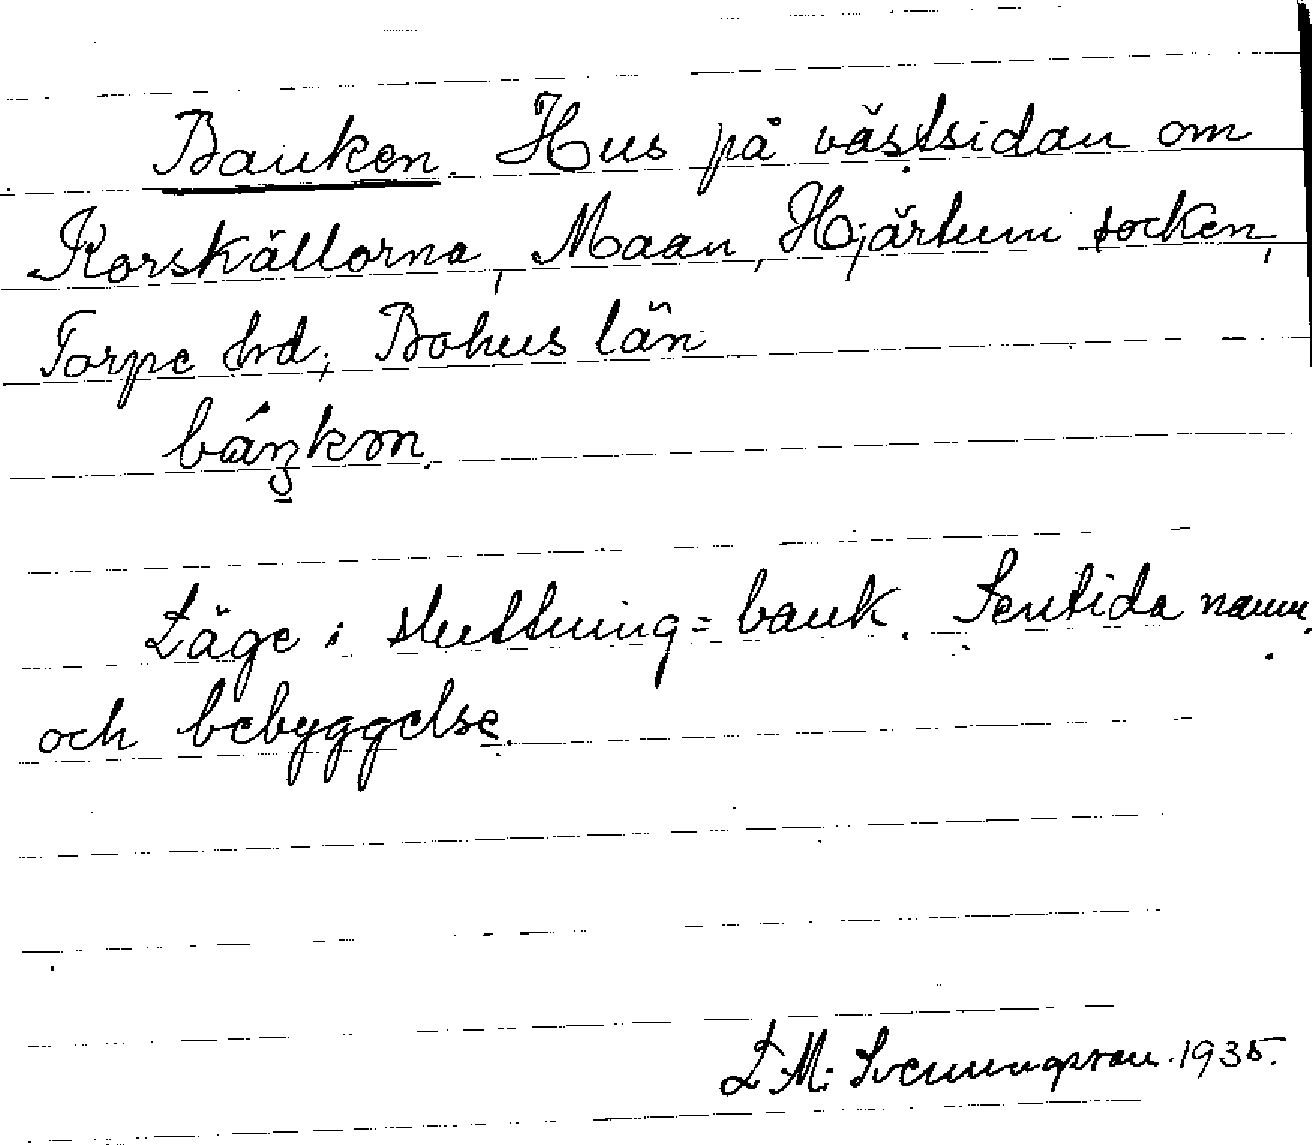 Banken. Hus på västsidan om
Korskällorna, Maan, Hjärtum socken,
Torpe hd; Bohus län
báŋkən.
Läge i sluttning = bank. Sentida namn
och bebyggelse.
L. M. Svenungsson. 1935.